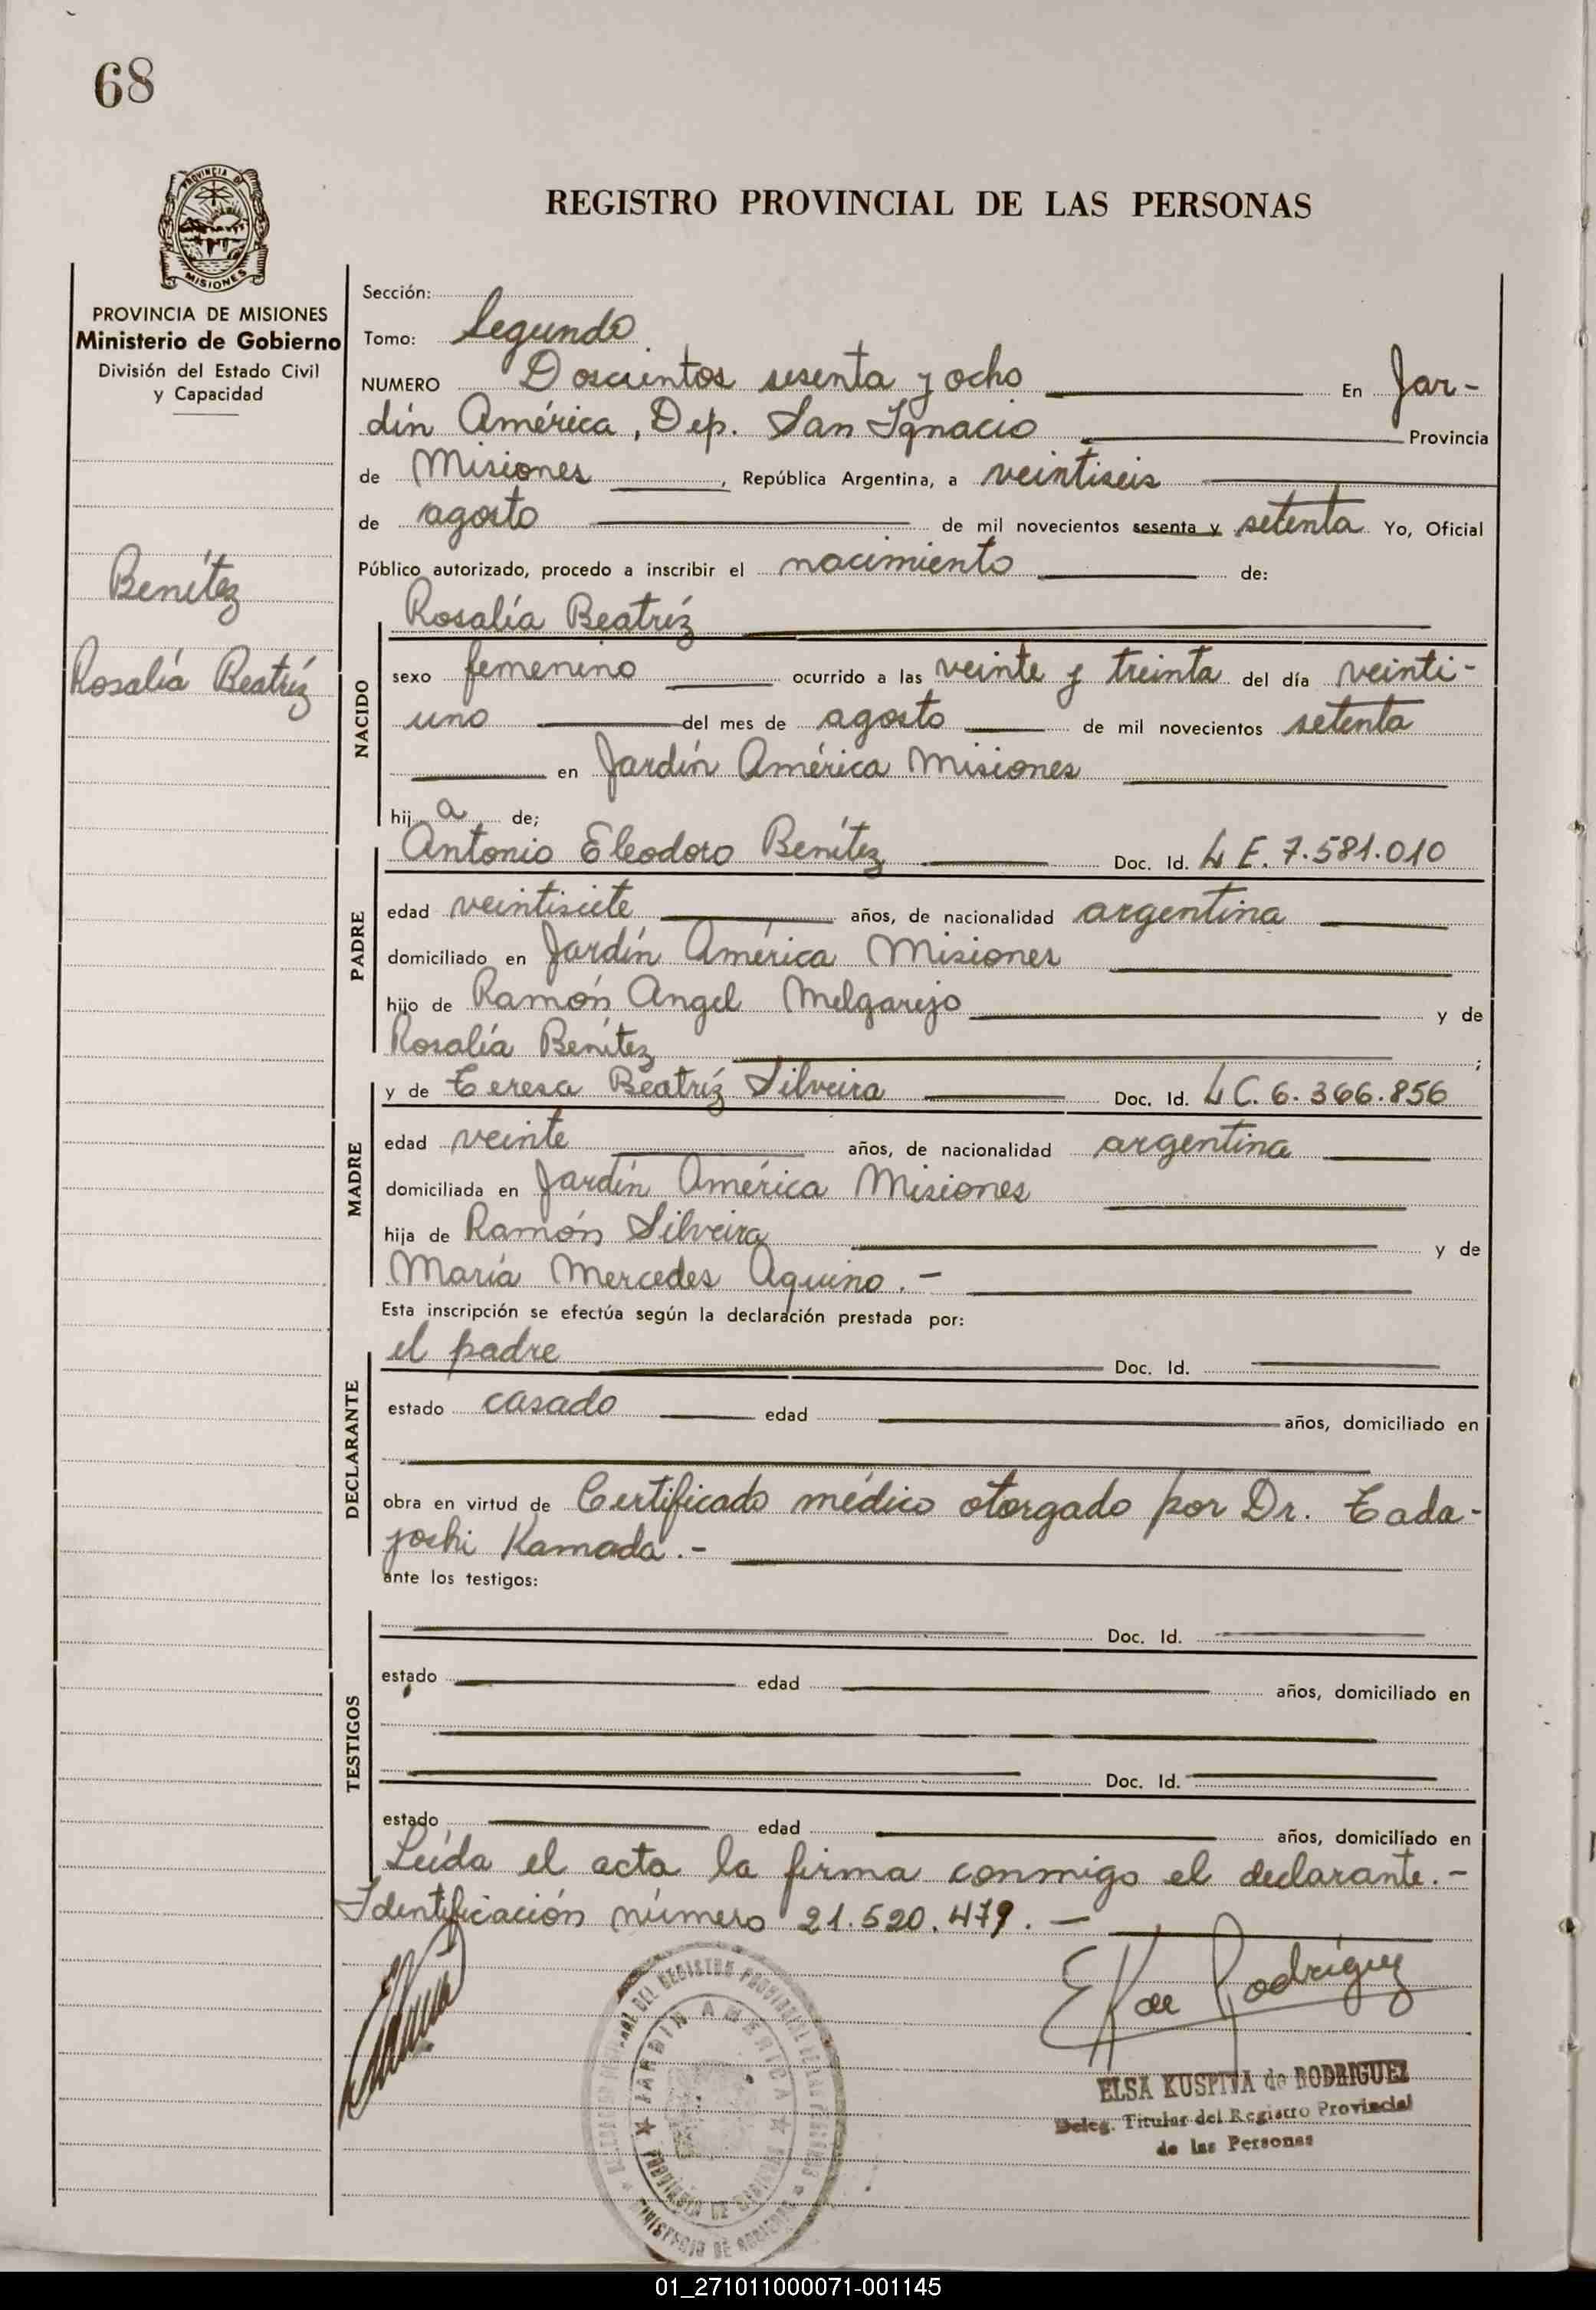 68
PROVINCIA DE
MISIONES
PROVINCIA DE MISIONES
Ministerio de Gobierno
División del Estado Civil
y Capacidad
Benítez
Rosalía Beatríz
REGISTRO PROVINCIAL DE LAS PERSONAS
Sección:
Tomo: Segundo
NUMERO Doscientos sesenta y ocho En Jar-
dín América, Dep. San Ignacio Provincia
de Misiones, República Argentina, a veintiseis
de agosto de mil novecientos sesenta y setenta Yo, Oficial
Público autorizado, procedo a inscribir el nacimiento de:
NACIDO
Rosalía Beatríz
sexo femenino ocurrido a las veinte y treinta del día veinti-
uno del mes de agosto de mil novecientos setenta
en Jardín América Misiones
hija de;
PADRE
Antonio Eleodoro Benítez Doc. Id. L E. 7.581.010
edad veintisiete años, de nacionalidad argentina
domiciliado en Jardín América Misiones
hijo de Ramón Angel Melgarejo y de
Rosalía Benítez ;
MADRE
y de Teresa Beatríz Silveira Doc. Id. L C. 6.366.856
edad veinte años, de nacionalidad argentina
domiciliada en Jardín América Misiones
hija de Ramón Silveira y de
María Mercedes Aquino.-
Esta inscripción se efectúa según la declaración prestada por:
DECLARANTE
el padre Doc. Id.
estado casado edad años, domiciliado en
obra en virtud de Certificado médico otorgado por Dr. Tada-
joshi Kamada.-
ante los testigos:
TESTIGOS
Doc. Id.
estado edad años, domiciliado en
Doc. Id.
estado edad años, domiciliado en
Leída el acta la firma conmigo el declarante.-
Identificación número 21.520.479.-
EK de Rodríguez
JARDIN AMERICA
DEL REGISTRO PROVINCIAL DE LAS PERSONAS
MINISTERIO DE GOBIERNO
ELSA KUSPITA de RODRIGUEZ
Deleg. Titular del Registro Provincial
de las Personas
01_271011000071-001145